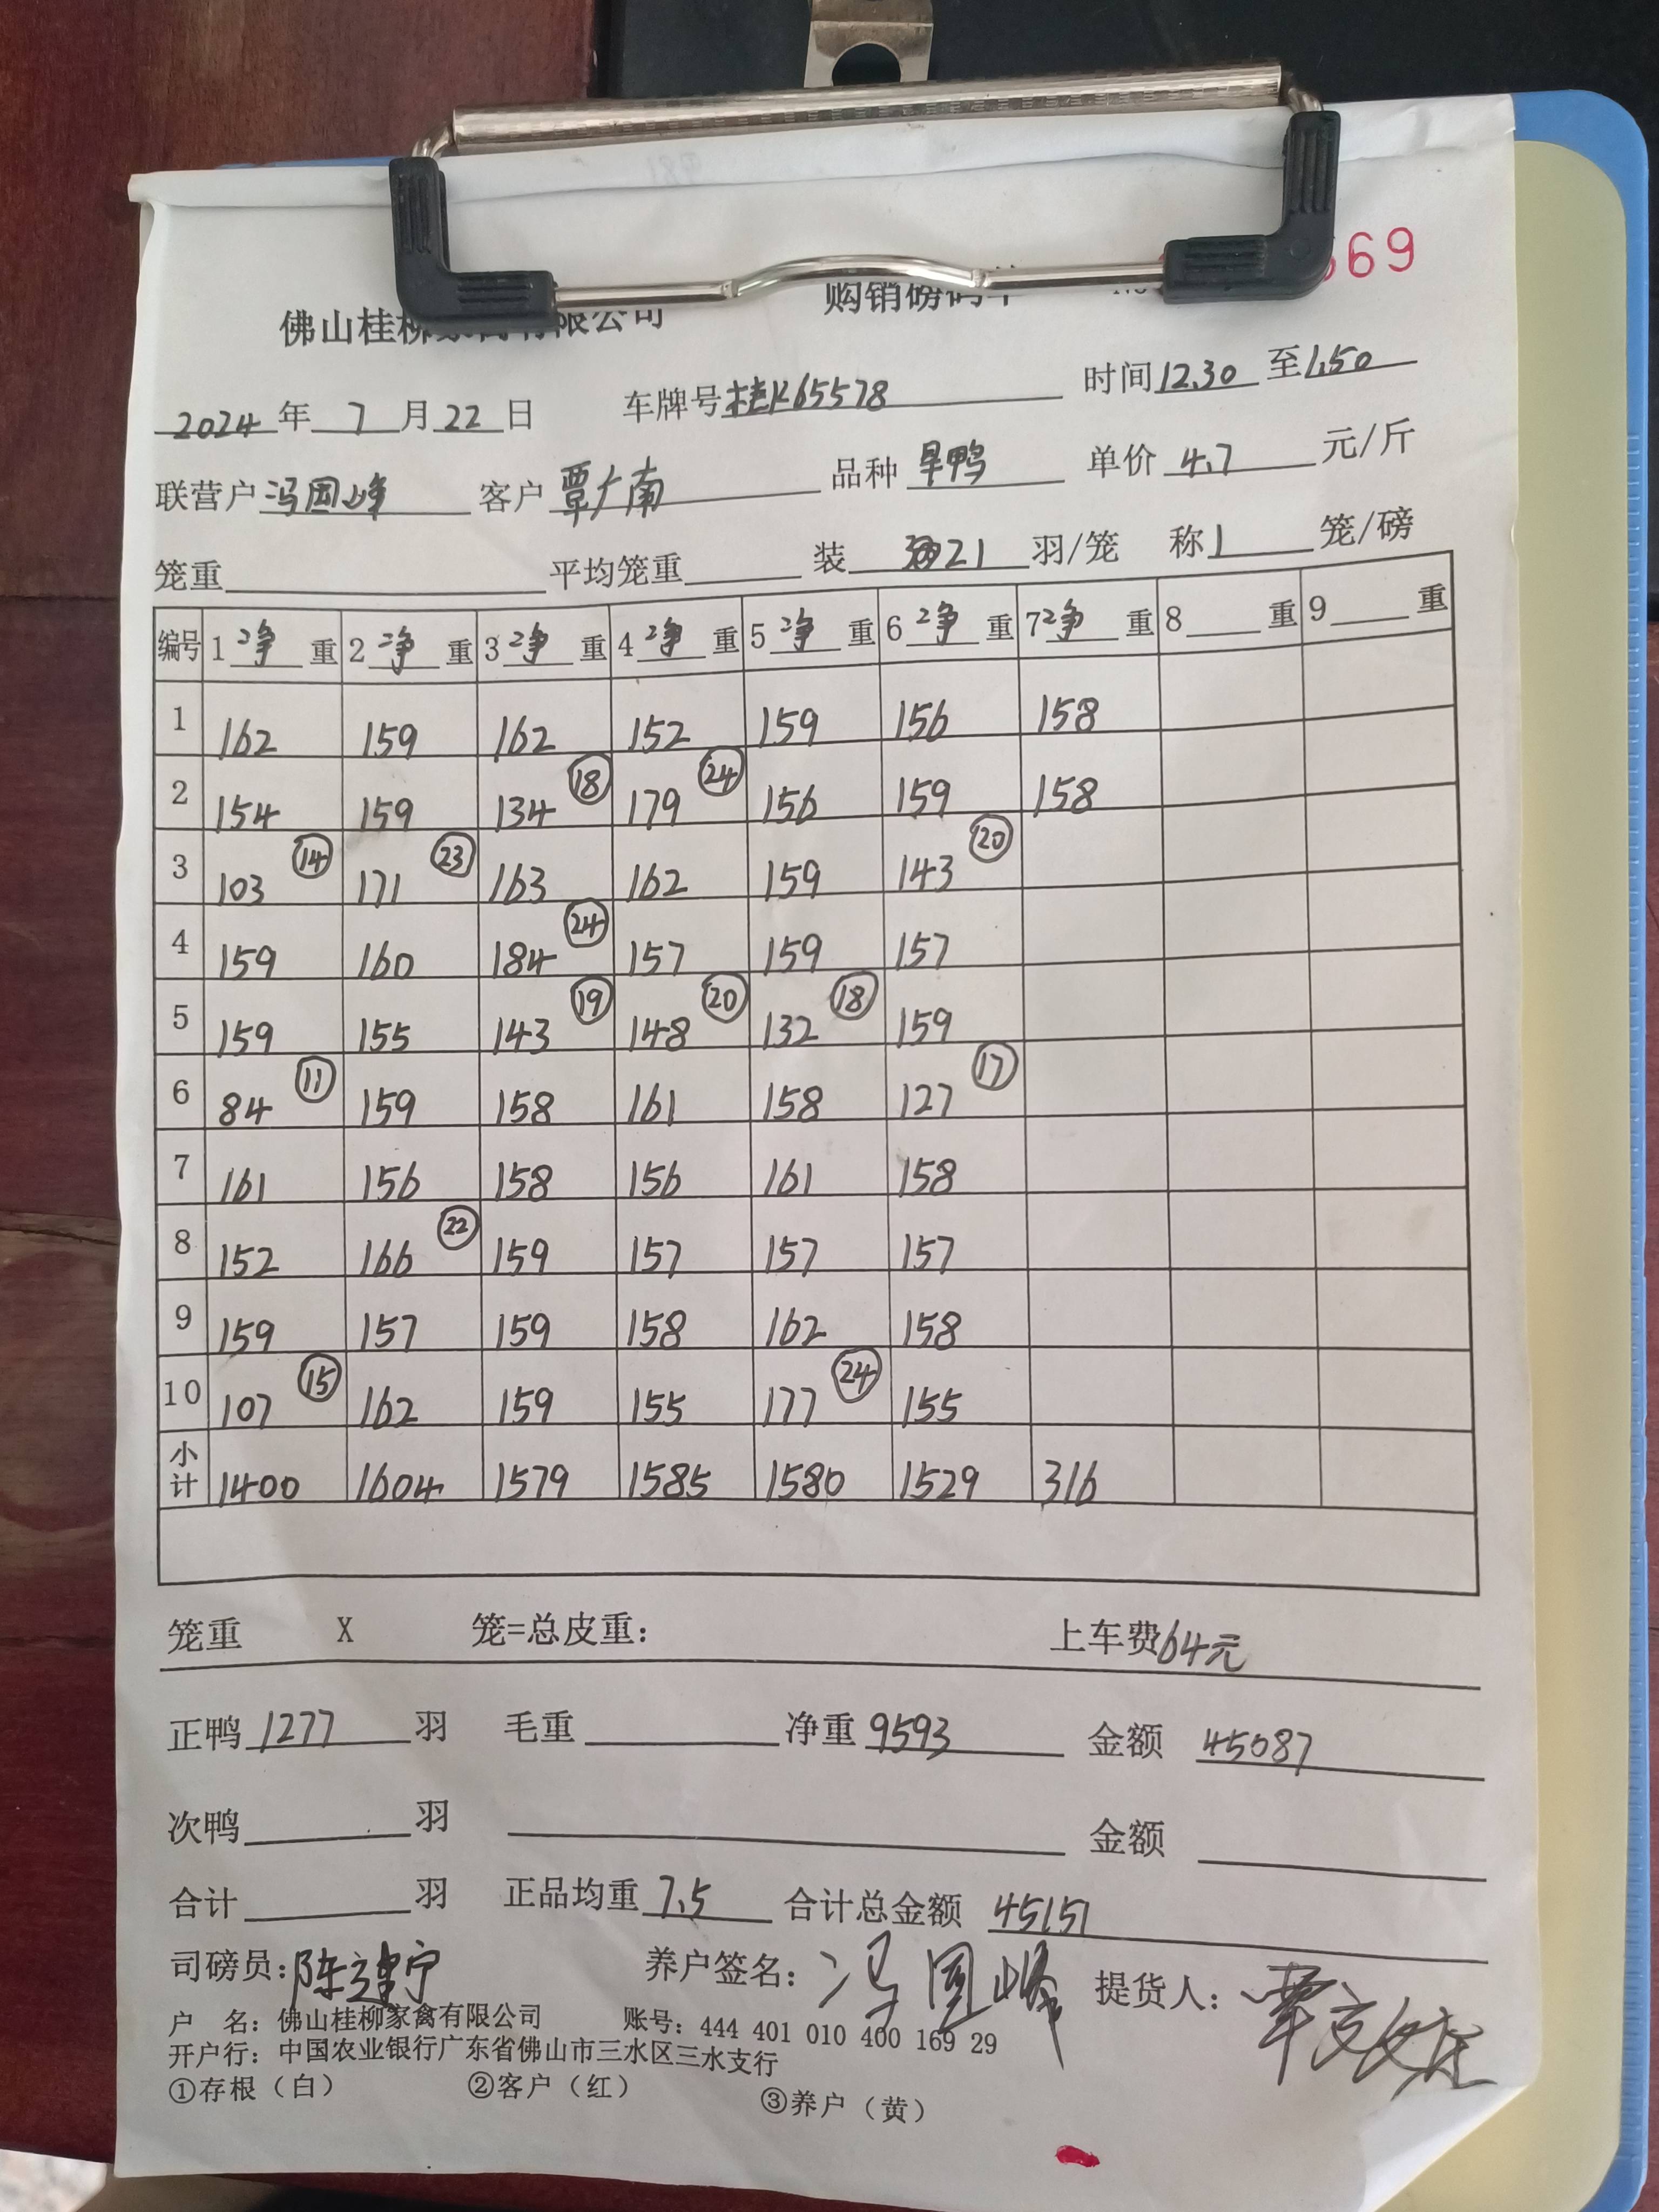 669
佛山桂柳家禽有限公司 购销磅码单
2024年7月22日 车牌号桂K65578 时间12.30至1.50
联营户冯国峰 客户覃广南 品种旱鸭 单价4.7元/斤
笼重 平均笼重 装21羽/笼 称1笼/磅
编号 1净重 2净重 3净重 4净重 5净重 6净重 7净重 8重 9重
1 162 159 162 152 159 156 158
2 154 159 134⑱ 179㉔ 156 159 158
3 103⑭ 171㉓ 163 162 159 143⑳
4 159 160 184㉔ 157 159 157
5 159 155 143⑲ 148⑳ 132⑱ 159
6 84⑪ 159 158 161 158 127⑰
7 161 156 158 156 161 158
8 152 166㉒ 159 157 157 157
9 159 157 159 158 162 158
10 107⑮ 162 159 155 177㉔ 155
小计 1400 1604 1579 1585 1580 1529 316
笼重 X 笼=总皮重: 上车费64元
正鸭1277羽 毛重 净重9593 金额45087
次鸭 羽 金额
合计 羽 正品均重7.5 合计总金额45151
司磅员:陈建宁 养户签名:冯国峰 提货人:
户 名:佛山桂柳家禽有限公司 账号:444 401 010 400 169 29
开户行:中国农业银行广东省佛山市三水区三水支行
①存根(白) ②客户(红) ③养户(黄)